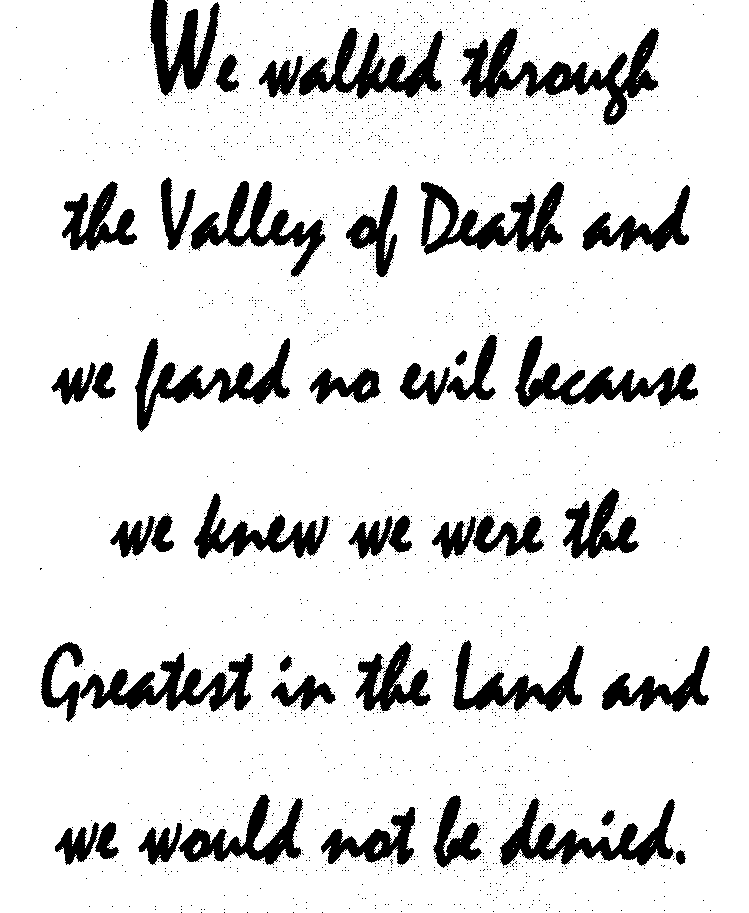 We walked through
the Valley of Death and
we feared no evil because
we knew we were the
Greatest in the Land and
we would not be denied.